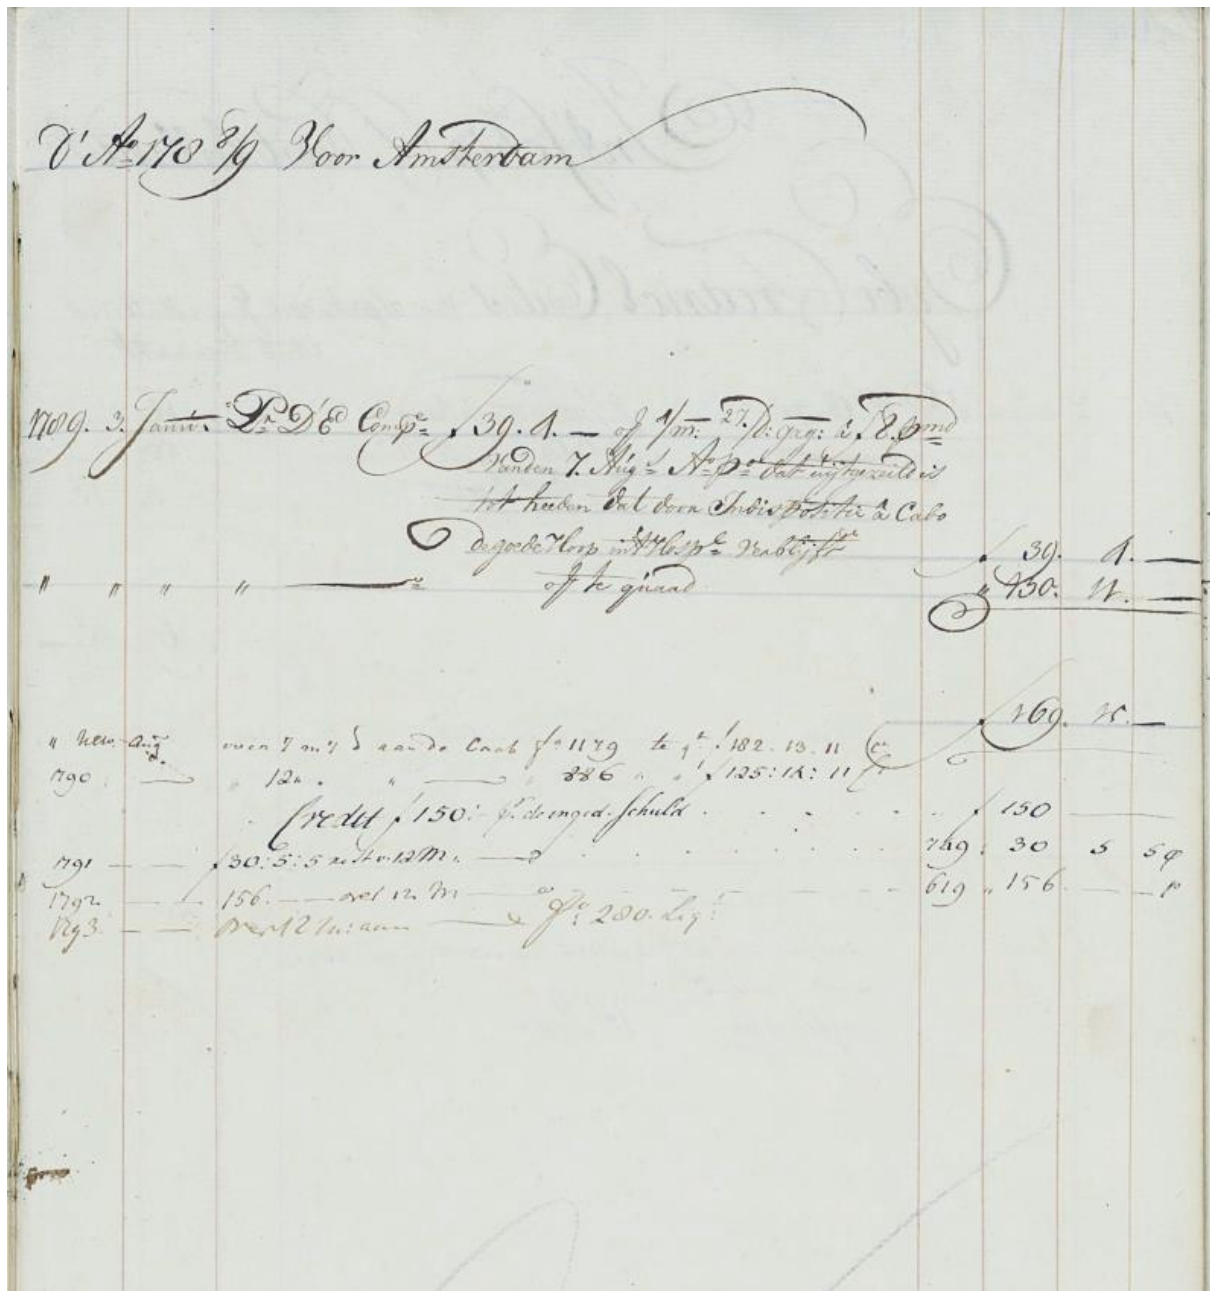 D' Ao 178 8/9 Voor Amsterdam
1789. 3. Janu: Pr D' E Compe f 39. 4. — of 4/m: 27/d: gag: â f 8. pmd
Vanden 7. Aug:s Ao po dat uijtgezeild is
tot heeden dat door Indispositie â Cabo
de goede Hoop int Hospl Verblijft f 39. 4. —
" " " " — of te quaad " 130. 11. —
f 169. 15. —
" Aug over 7 m aan de Caab fo 1179 te qt f 182. 13. 11
1790 — " 12 " " — " 886 " " f 125: 12: 11
Credit f 150: de schuld f 150 —
1791 — — f 30: 5: 5 rest v. 12 m. — 749 " 30 5 5
1792 — — 156. — over 12 m — 619 " 156 —
1793 — — over 12 m: aan — fo: 280. Liq: